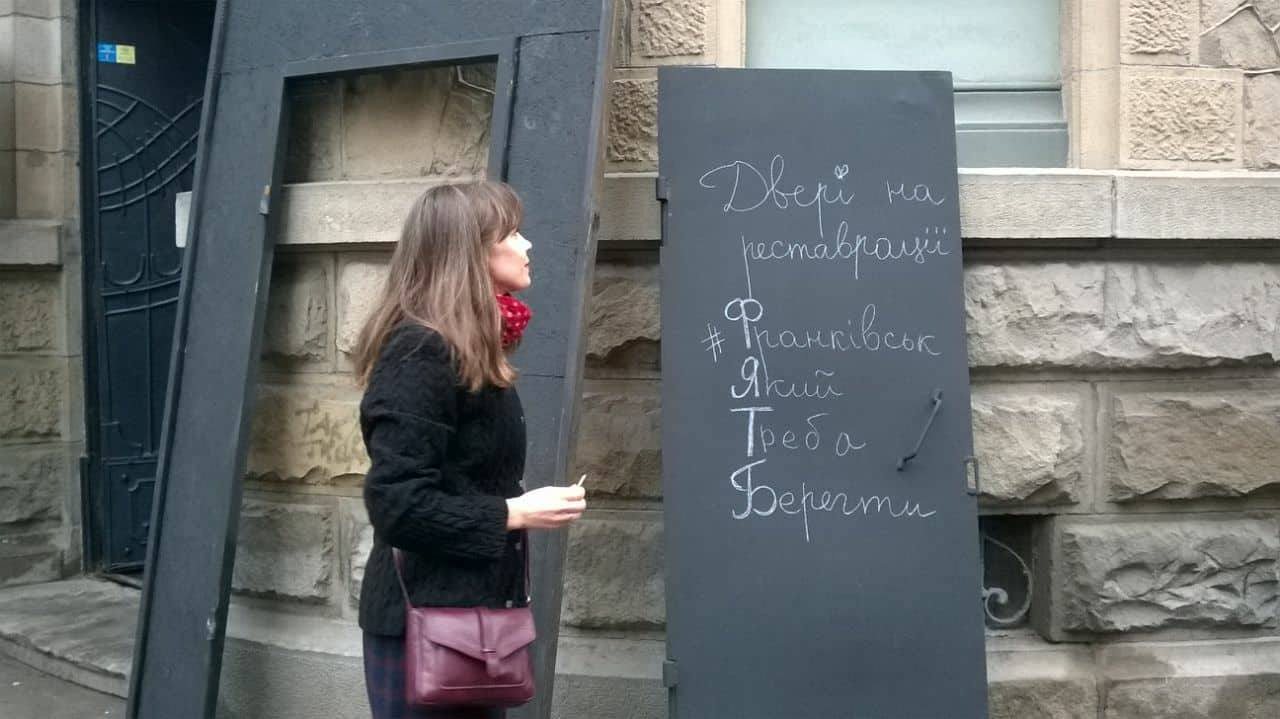 Двері на
реставрації
#Франківськ
Який
Треба
Берегти